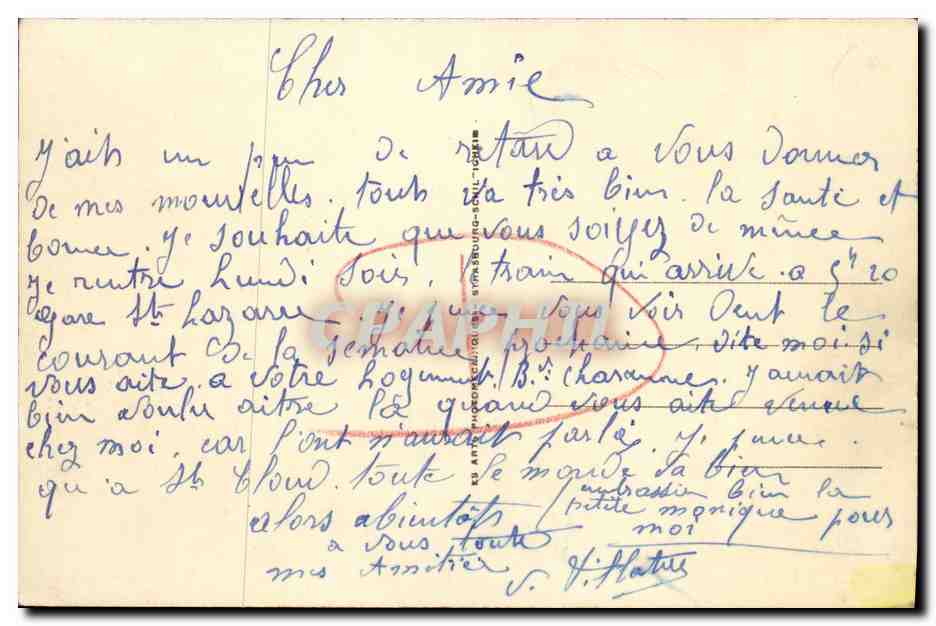 Cher Amie
J'aits un peu de retard a vous donner
de mes nouvelles. touts va très bien. la santé et
bonne. Je souhaite que vous soiyez de même
je rentre lundi soir, train qui arrive a 5h 20
gare St Lazare. Je vous voir dent le
courant de la semaine prochaine, dite moi. si
vous aite. a votre logement. Bd Charonne. J'aurait
bien voulu aitre là quand vous aite venue
chez moi, car l'ont n'aurait parlé. Je pence.
qu'a St Cloud. toute le monde va bien
alors abientôts
a vous toute
mes Amitiés
embrassier bien la
petite monique pour
moi
ES ARTS PHOTOMECANIQUES STRASBOURG-SCHILTIGHEIM
CPAPHIL